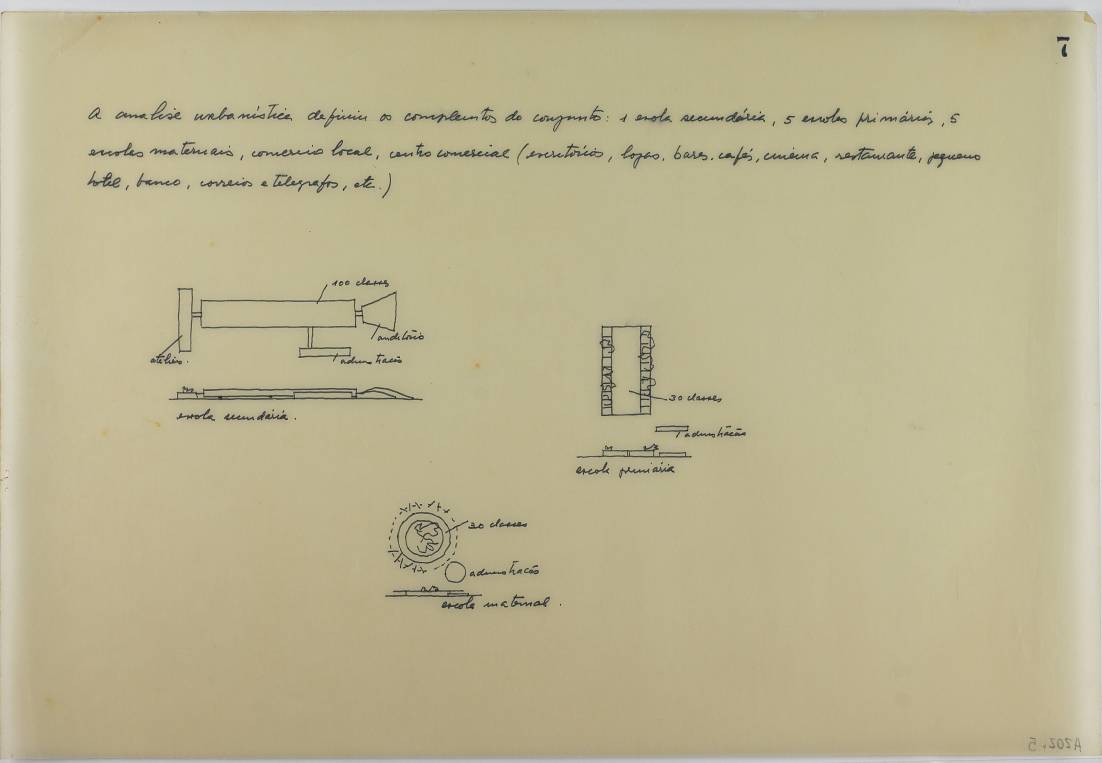 7
A analise urbanística definiu os complementos do conjunto: 1 escola secundária, 5 escolas primárias, 5
escolas maternais, comercio local, centro comercial (escritórios, lojas, bares, cafés, cinema, restaurante, pequeno
hotel, banco, correios e telegrafos, etc.)
100 classes
auditório
ateliers.
administração
escola secundária.
30 classes
administração
escola primária
30 classes
administração
escola maternal.